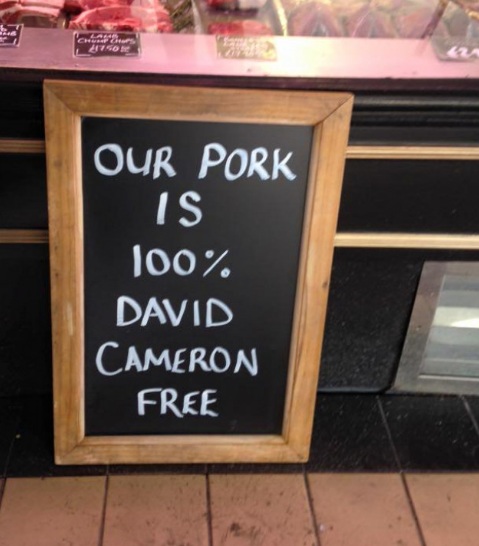 LAMB
CHUMP CHOPS
£17.50
OUR PORK
IS
100%
DAVID
CAMERON
FREE